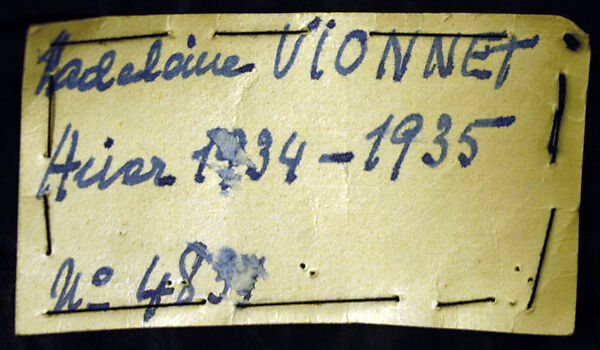 Madeleine VIONNET
Hiver 1934-1935
No